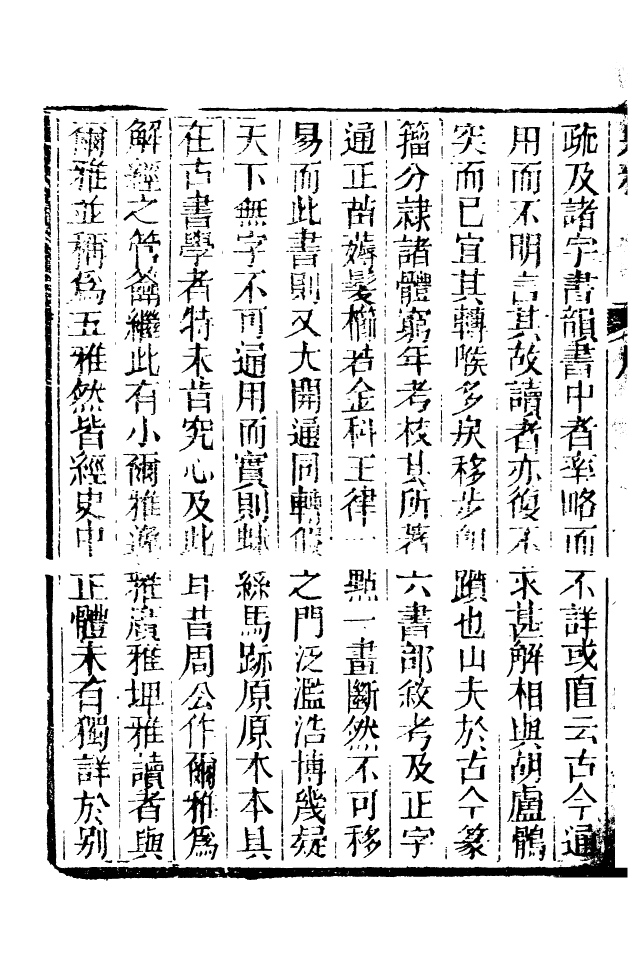 疏及諸字書韻書中者率略而不詳或直云古今通
用而不明言其故讀者亦復不求甚解相與胡盧鶻
突而已宜其轉喉多戾移步卽躓也山夫於古今篆
籀分隸諸體窮年考校其所著六書部敘考及正字
通正苗薅髮櫛若金科玉律一點一畫斷然不可移
易而此書則又大開通同轉假之門泛濫浩博幾疑
天下無字不可通用而實則蛛絲馬跡原原本本具
在古書學者特未肯究心及此耳昔周公作爾雅爲
解經之筦籥繼此有小爾雅逸雅廣雅埤雅讀者與
爾雅並稱爲五雅然皆經史中正體未有獨詳於别